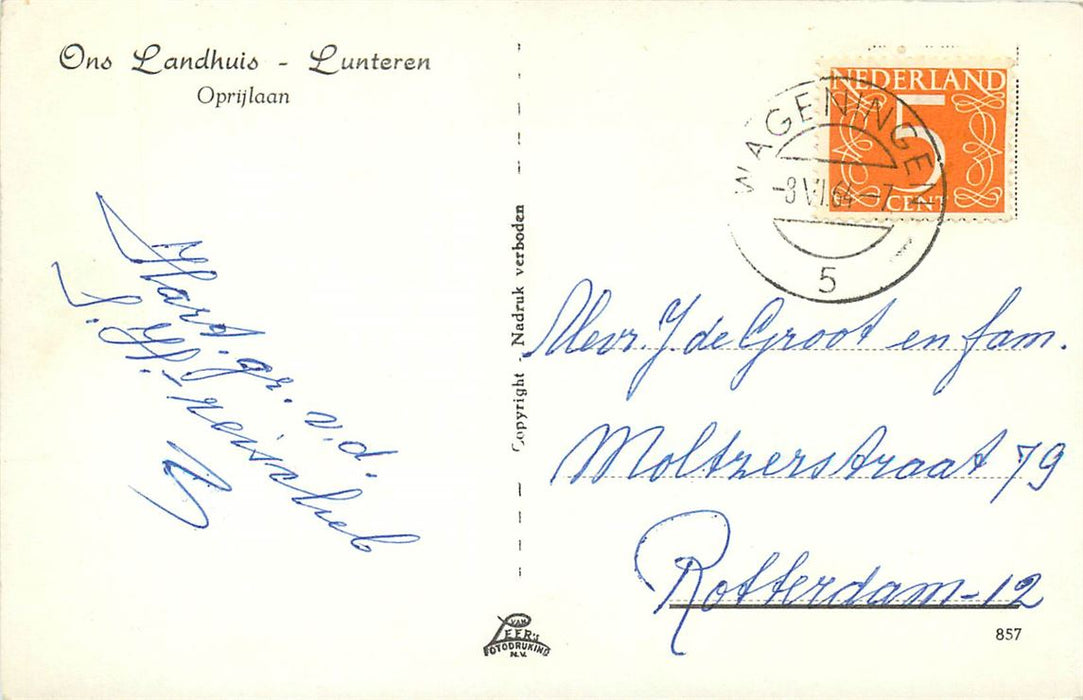 Ons Landhuis - Lunteren
Oprijlaan
Hart. gr. v.d.
Copyright - Nadruk verboden
VAN
LEER'S
FOTODRUKIND
N.V.
NEDERLAND
5
CENT
WAGENINGEN
-8 VI.64-7
5
Mevr. J. de Groot en fam.
Moltzerstraat 79
Rotterdam-12
857